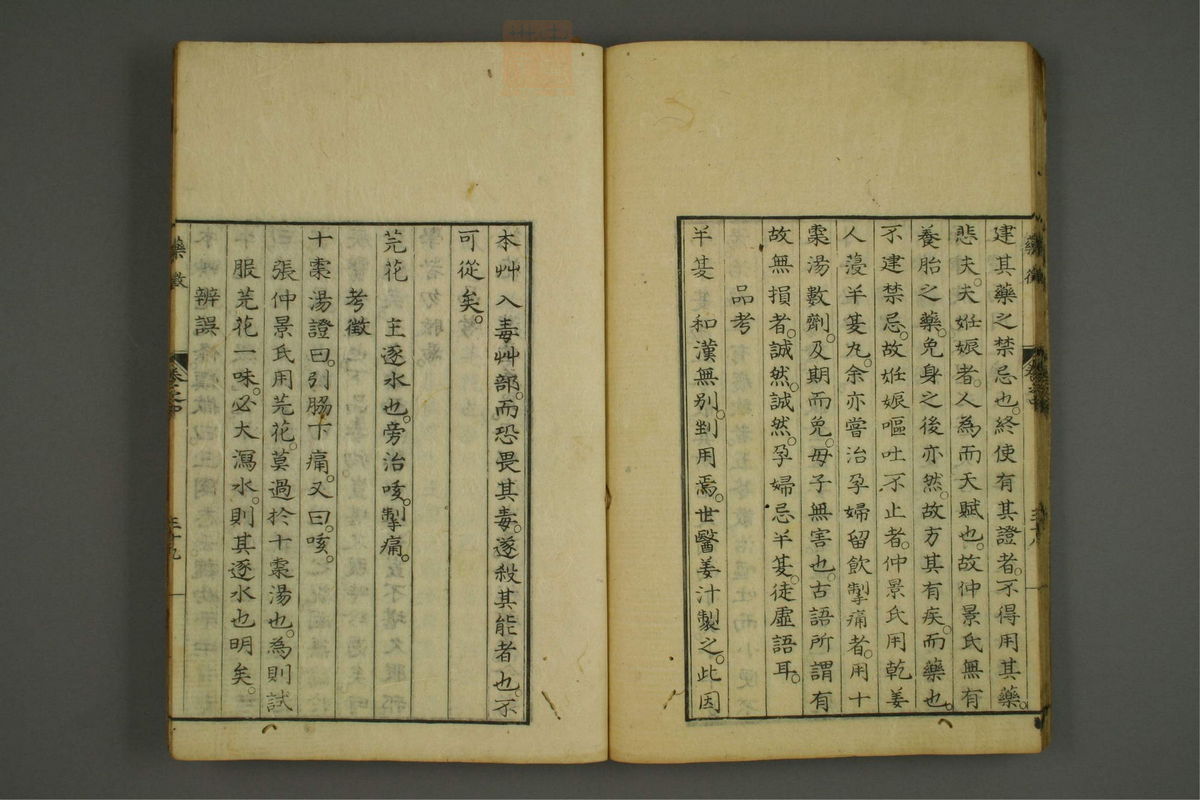 建其藥之禁忌也。終使有其證者。不得用其藥。
悲夫。夫妊娠者。人為而天賦也。故仲景氏無有
養胎之藥。免身之後亦然。故方其有疾。而藥也。
不建禁忌。故妊娠嘔吐不止者。仲景氏用乾姜
人薓半夏丸。余亦嘗治孕婦留飲掣痛者。用十
棗湯數劑。及期而免。母子無害也。古語所謂有
故無損者。誠然。誠然。孕婦忌半夏。徒虛語耳。
品考
半夏 和漢無別。剉用焉。世醫姜汁製之。此因
藥徵
卷之中
三十八
本艸入毒艸部。而恐畏其毒。遂殺其能者也。不
可從矣。
芫花 主逐水也。旁治咳。掣痛。
考徵
十棗湯證曰。引脇下痛。又曰。咳。
張仲景氏用芫花。莫過於十棗湯也。為則試
服芫花一味。必大瀉水。則其逐水也明矣。
辨誤
藥徵
卷之中
三十九